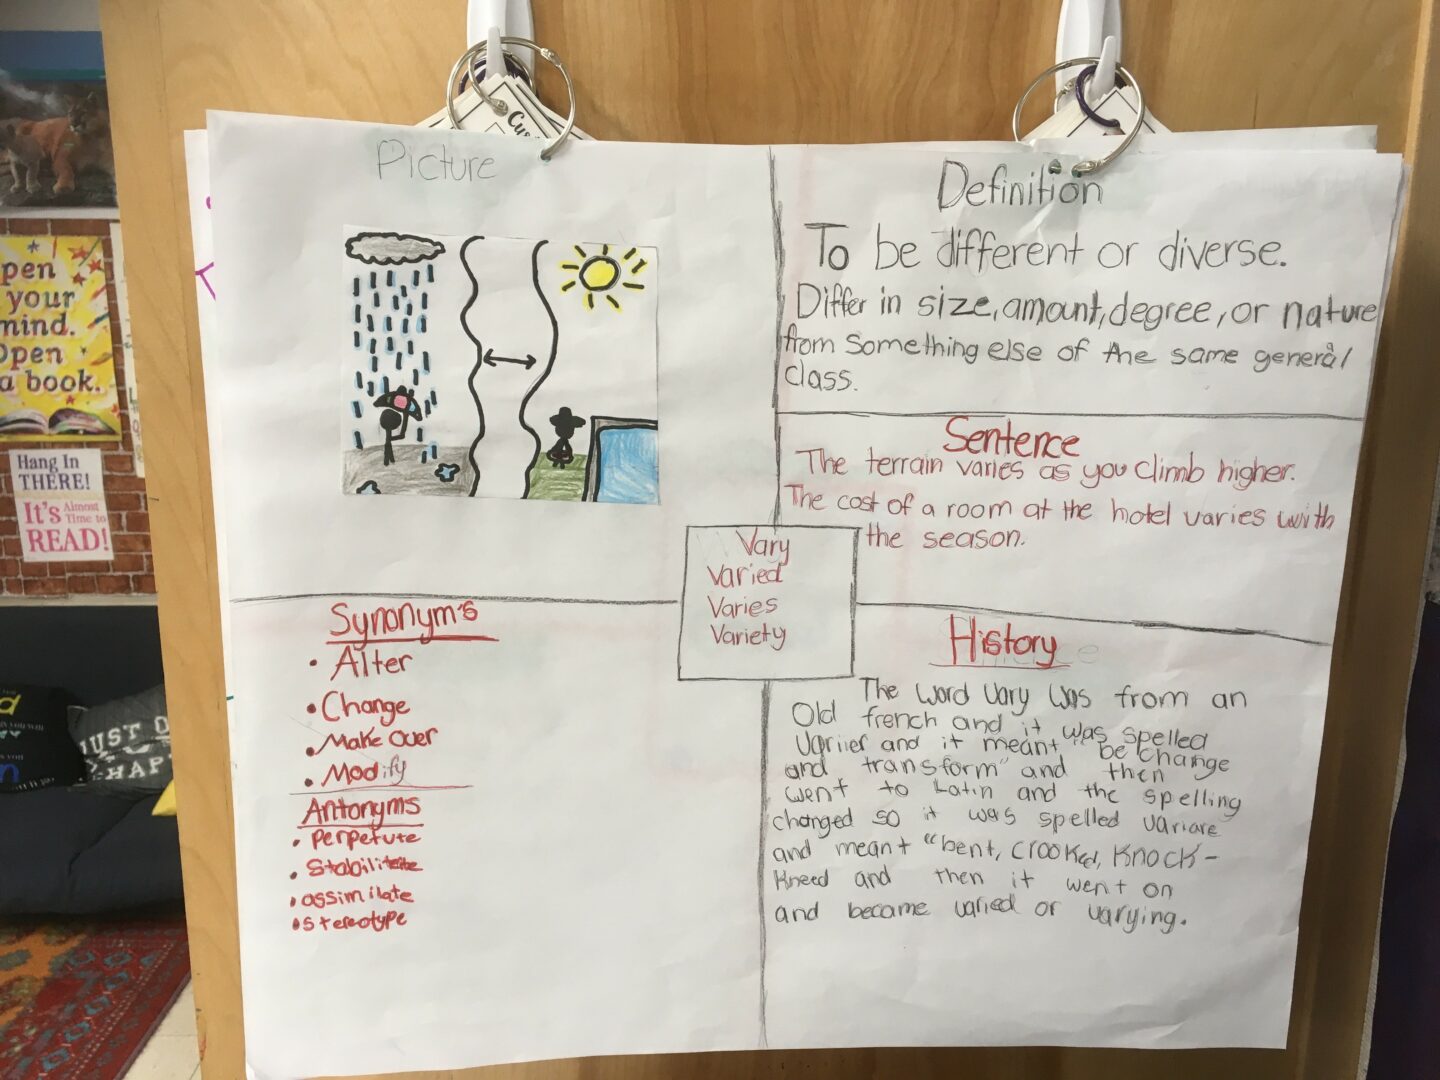 Picture
Definition
To be different or diverse.
Differ in size, amount, degree, or nature
from something else of the same general
class.
Sentence
The terrain varies as you climb higher.
The cost of a room at the hotel varies with
the season.
Vary
Varied
Varies
Variety
Synonym's
• Alter
• Change
• Make over
• Modify
Antonyms
• Perpetute
• assimilate
• stereotype
History
The word vary was from an
Old french and it was spelled
variier and it meant "be change
and transform" and then
went to Latin and the spelling
changed so it was spelled variare
and meant "bent, crooked, knock-
kneed and then it went on
and became varied or varying.
pen
your
mind.
Open
a book.
Hang In
THERE!
It's Almost
Time to
READ!
UST O
HAP